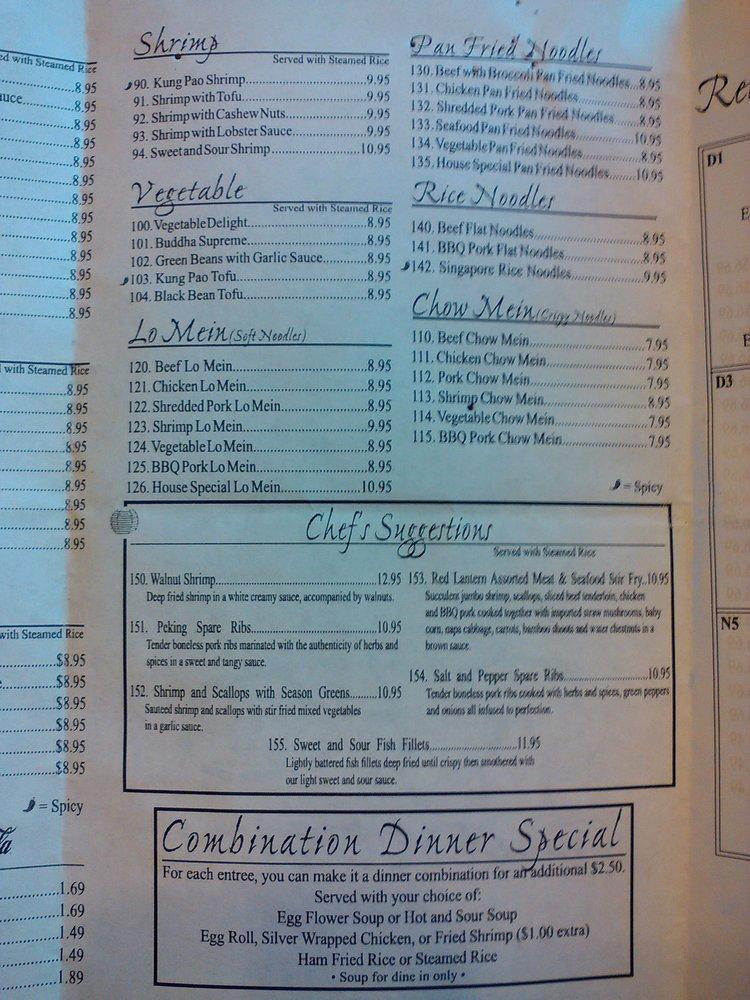 ed with Steamed Rice
8.95
uce
8.95
8.95
8.95
8.95
8.95
8.95
8.95
8.95
8.95
8.95
8.95
8.95
with Steamed Rice
8.95
8.95
8.95
8.95
8.95
8.95
8.95
8.95
8.95
with Steamed Rice
$8.95
$8.95
$8.95
$8.95
$8.95
$8.95
= Spicy
1.69
1.69
1.49
1.49
1.89
Shrimp
Served with Steamed Rice
90. Kung Pao Shrimp 9.95
91. Shrimp with Tofu 9.95
92. Shrimp with Cashew Nuts 9.95
93. Shrimp with Lobster Sauce 9.95
94. Sweet and Sour Shrimp 10.95
Vegetable
Served with Steamed Rice
100. Vegetable Delight 8.95
101. Buddha Supreme 8.95
102. Green Beans with Garlic Sauce 8.95
103. Kung Pao Tofu 8.95
104. Black Bean Tofu 8.95
Lo Mein (Soft Noodles)
120. Beef Lo Mein 8.95
121. Chicken Lo Mein 8.95
122. Shredded Pork Lo Mein 8.95
123. Shrimp Lo Mein 9.95
124. Vegetable Lo Mein 8.95
125. BBQ Pork Lo Mein 8.95
126. House Special Lo Mein 10.95
Pan Fried Noodles
130. Beef with Broccoli Pan Fried Noodles 8.95
131. Chicken Pan Fried Noodles 8.95
132. Shredded Pork Pan Fried Noodles 8.95
133. Seafood Pan Fried Noodles 10.95
134. Vegetable Pan Fried Noodles 8.95
135. House Special Pan Fried Noodles 10.95
Rice Noodles
140. Beef Flat Noodles 8.95
141. BBQ Pork Flat Noodles 8.95
142. Singapore Rice Noodles 9.95
Chow Mein (Crispy Noodles)
110. Beef Chow Mein 7.95
111. Chicken Chow Mein 7.95
112. Pork Chow Mein 7.95
113. Shrimp Chow Mein 8.95
114. Vegetable Chow Mein 7.95
115. BBQ Pork Chow Mein 7.95
= Spicy
Chef's Suggestions
Served with Steamed Rice
150. Walnut Shrimp 12.95
Deep fried shrimp in a white creamy sauce, accompanied by walnuts.
151. Peking Spare Ribs 10.95
Tender boneless pork ribs marinated with the authenticity of herbs and
spices in a sweet and tangy sauce.
152. Shrimp and Scallops with Season Greens 10.95
Sauteed shrimp and scallops with stir fried mixed vegetables
in a garlic sauce.
153. Red Lantern Assorted Meat & Seafood Stir Fry 10.95
Succulent jumbo shrimp, scallops, sliced beef tenderloin, chicken
and BBQ pork cooked together with imported straw mushrooms, baby
corn, napa cabbage, carrots, bamboo shoots and water chestnuts in a
brown sauce.
154. Salt and Pepper Spare Ribs 10.95
Tender boneless pork ribs cooked with herbs and spices, green peppers
and onions all infused to perfection.
155. Sweet and Sour Fish Fillets 11.95
Lightly battered fish fillets deep fried until crispy then smothered with
our light sweet and sour sauce.
Combination Dinner Special
For each entree, you can make it a dinner combination for an additional $2.50.
Served with your choice of:
Egg Flower Soup or Hot and Sour Soup
Egg Roll, Silver Wrapped Chicken, or Fried Shrimp ($1.00 extra)
Ham Fried Rice or Steamed Rice
• Soup for dine in only •
D1
D3
N5